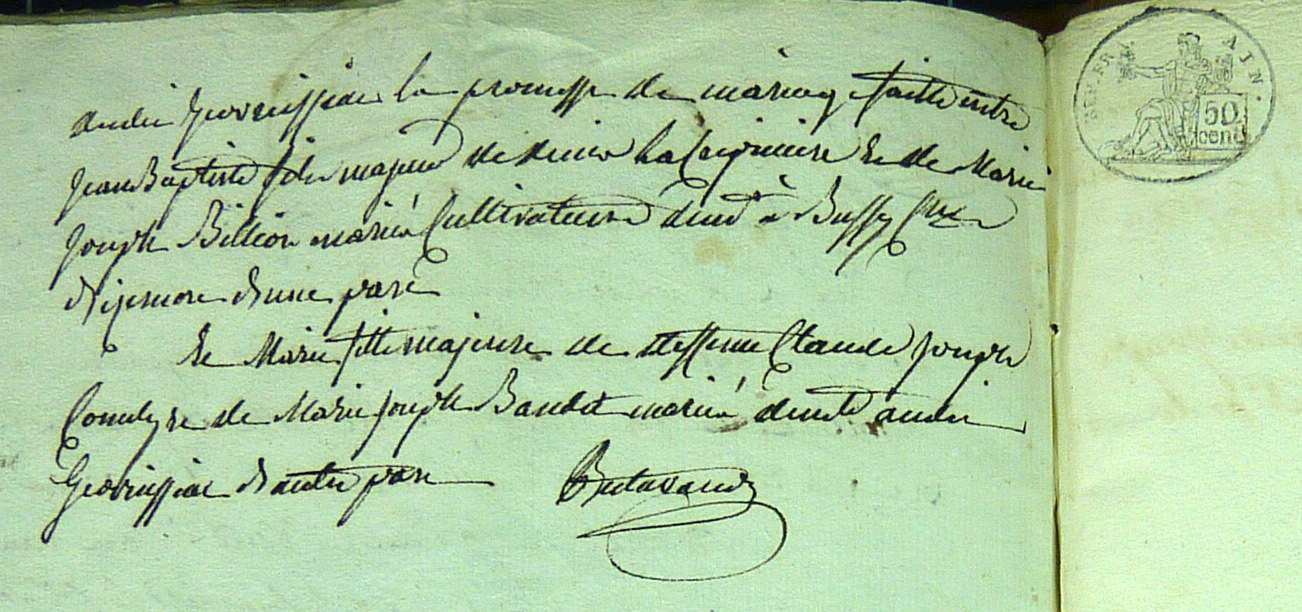 audit Geovressiat la promesse de mariage faitte entre
Jean Baptiste fils majeur de Denis La Croix et de Marie
Joseph Billion mariés Cultivateurs demt à Bussy Cne
d'izernore d'une part
et Marie fille majeure de deffunt Claude Joseph
et de Marie Joseph Baudet mariés demt audit
Geovressiat d'autre part
AIN.
50
cent